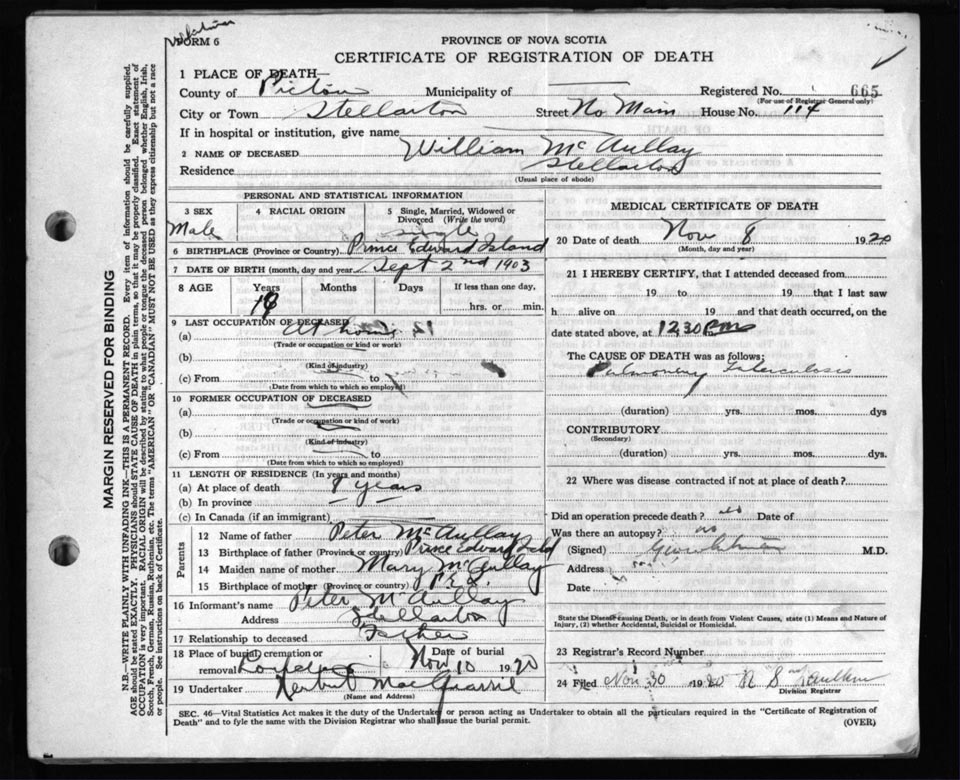 FORM 6
PROVINCE OF NOVA SCOTIA
CERTIFICATE OF REGISTRATION OF DEATH
1 PLACE OF DEATH—
County of Pictou Municipality of Registered No. 665
(For use of Registrar General only)
City or Town Stellarton Street No Main House No. 114
If in hospital or institution, give name
2 NAME OF DECEASED William McAullay
Residence Stellarton
(Usual place of abode)
PERSONAL AND STATISTICAL INFORMATION
3 SEX Male
4 RACIAL ORIGIN
5 Single, Married, Widowed or Divorced (Write the word) Single
6 BIRTHPLACE (Province or Country) Prince Edward Island
7 DATE OF BIRTH (month, day and year) Sept 2nd 1903
8 AGE Years Months Days If less than one day,
hrs. or min.
9 LAST OCCUPATION OF DECEASED
(a) At home
(Trade or occupation or kind or work)
(b)
(Kind of industry)
(c) From to
(Date from which to which so employed)
10 FORMER OCCUPATION OF DECEASED
(a)
(Trade or occupation or kind of work)
(b)
(Kind of industry)
(c) From to
(Date from which to which so employed)
11 LENGTH OF RESIDENCE (In years and months)
(a) At place of death 8 years
(b) In province
(c) In Canada (if an immigrant)
Parents
12 Name of father Peter McAullay
13 Birthplace of father (Province or country) Prince Edward Isld
14 Maiden name of mother Mary McAullay
15 Birthplace of mother (Province or country) P.E.I.
16 Informant's name Peter McAullay
Address Stellarton
17 Relationship to deceased Father
18 Place of burial, cremation or removal Date of burial Nov 10 1920
19 Undertaker Herbert MacGrassil
(Name and Address)
MEDICAL CERTIFICATE OF DEATH
20 Date of death Nov 8 1920
(Month, day and year)
21 I HEREBY CERTIFY, that I attended deceased from
19 to 19 that I last saw
h alive on 19 and that death occurred, on the
date stated above, at 12.30 pm
The CAUSE OF DEATH was as follows:
Pulmonary Tuberculosis
(duration) yrs. mos. dys
CONTRIBUTORY
(Secondary)
(duration) yrs. mos. dys.
22 Where was disease contracted if not at place of death?
Did an operation precede death? no Date of
Was there an autopsy? no
(Signed) M.D.
Address
Date
State the Disease causing Death, or in death from Violent Causes, state (1) Means and Nature of
Injury, (2) whether Accidental, Suicidal or Homicidal.
23 Registrar's Record Number
24 Filed Nov 30 1920
Division Registrar
SEC. 46—Vital Statistics Act makes it the duty of the Undertaker or person acting as Undertaker to obtain all the particulars required in the "Certificate of Registration of
Death" and to fyle the same with the Division Registrar who shall issue the burial permit.
(OVER)
MARGIN RESERVED FOR BINDING
N.B.—WRITE PLAINLY WITH UNFADING INK—THIS IS A PERMANENT RECORD. Every item of information should be carefully supplied.
AGE should be stated EXACTLY. PHYSICIANS should STATE CAUSE OF DEATH in plain terms, so that it may be properly classified. Exact statement of
OCCUPATION is very important. RACIAL ORIGIN will be described by stating to what people or tongue the deceased person belonged whether English, Irish,
Scotch, French, German, Russian, Ruthenian, etc. The terms "AMERICAN" OR "CANADIAN" MUST NOT BE USED as they express citizenship but not a race
or people. See instructions on back of Certificate.